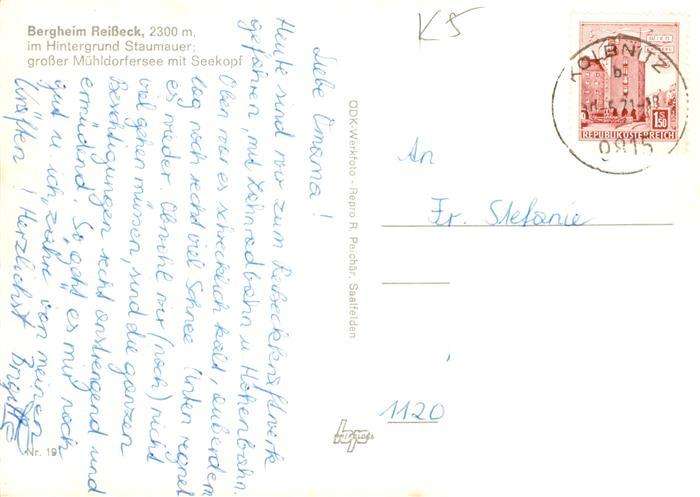 Bergheim Reißeck, 2300 m,
im Hintergrund Staumauer;
großer Mühldorfersee mit Seekopf
K5
Liebe Omama!
Heute sind wir zum Reißeckkraftwerk
gefahren, mit Zahnradbahn u Höhenbahn.
Oben war es schrecklich kalt, außerdem
lag noch recht viel Schnee. Unten regnet
es wieder. Obwohl wir (noch) nicht
viel gehen müssen, sind die ganzen
Besichtigungen recht anstrengend und
ermüdend. So geht es mir noch
gut u. ich "zehre" von meinen
Kräften! Herzlichst Brigitte
Nr. 19
ODK-Werkfoto - Repro R. Peichär, Saalfelden
bp
WIEN
1.50
REPUBLIK ÖSTERREICH
KOLBNITZ
b
6.71-18
9815
An
Fr. Stefanie
1120